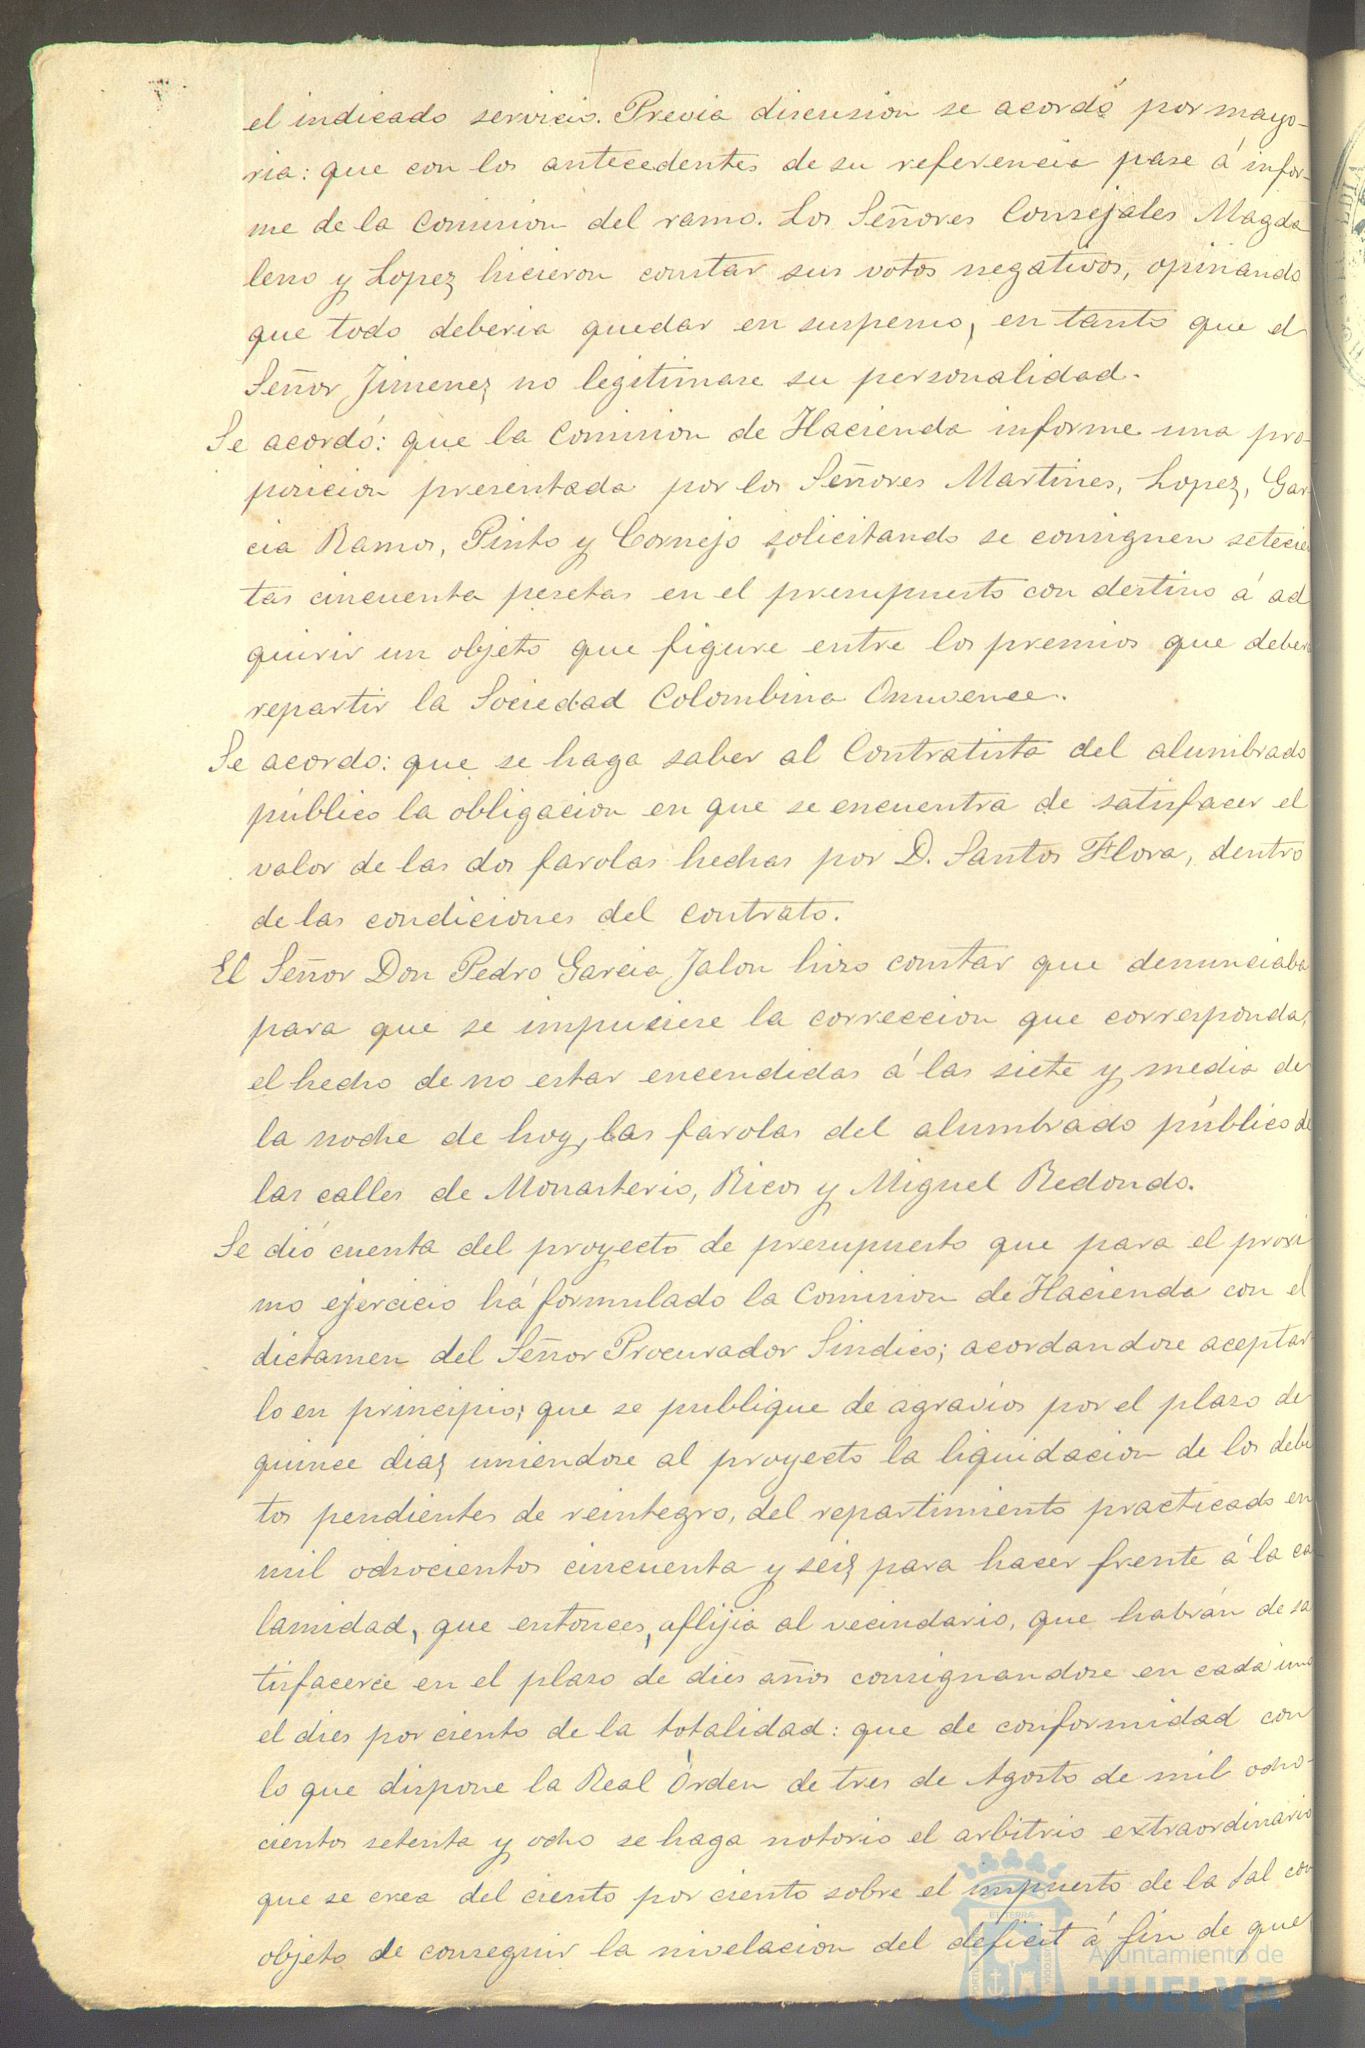 el indicado servicio. Previa discusion se acordó por mayo-
ria: que con los antecedentes de su referencia pase á infor-
me de la Comision del ramo. Los Señores Consejales Magda
leno y Lopez hicieron constar sus votos negativos, opinando
que todo deberia quedar en suspenso, en tanto que el
Señor Jimenez no legitimase su personalidad.
Se acordó: que la Comision de Hacienda informe una pro-
posicion presentada por los Señores Martines, Lopez, Gar-
cia Ramos, Pinto y Cornejo solicitando se consignen setecien
tas cincuenta pesetas en el presupuesto con destino á ad
quirir un objeto que figure entre los premios que deberá
repartir la Sociedad Colombina Onuvence.
Se acordo: que se haga saber al Contratista del alumbrado
público la obligacion en que se encuentra de satisfacer el
valor de las dos farolas hechas por D. Santos Flora, dentro
de las condiciones del contrato.
El Señor Don Pedro Garcia Jalon hizo constar que denunciaba
para que se impuciese la correccion que corresponda,
el hecho de no estar encendidas á las siete y media de
la noche de hoy, las farolas del alumbrado público de
las calles de Monasterio, Ricos y Miguel Redondo.
Se dió cuenta del proyecto de presupuesto que para el proxi
mo ejercicio há formulado la Comision de Hacienda con el
dictamen del Señor Procurador Sindico; acordandose aceptar
lo en principio; que se publique de agravios por el plaso de
quince diaz uniendose al proyecto la liquidacion de los debi
tos pendientes de reintegro, del repartimiento practicado en
mil ochocientos cincuenta y seiz para hacer frente á la ca
lamidad, que entonces, aflijia al vecindario, que habrán de sa
tisfacerce en el plaso de dies años consignandose en cada uno
el dies por ciento de la totalidad: que de conformidad con
lo que dispone la Real Órden de tres de Agosto de mil ocho-
cientos setenta y ocho se haga notorio el arbitrio extraordinario
que se crea del ciento por ciento sobre el impuesto de la Sal con
objeto de conseguir la nivelacion del deficit á fin de que
Ayuntamiento de
HUELVA